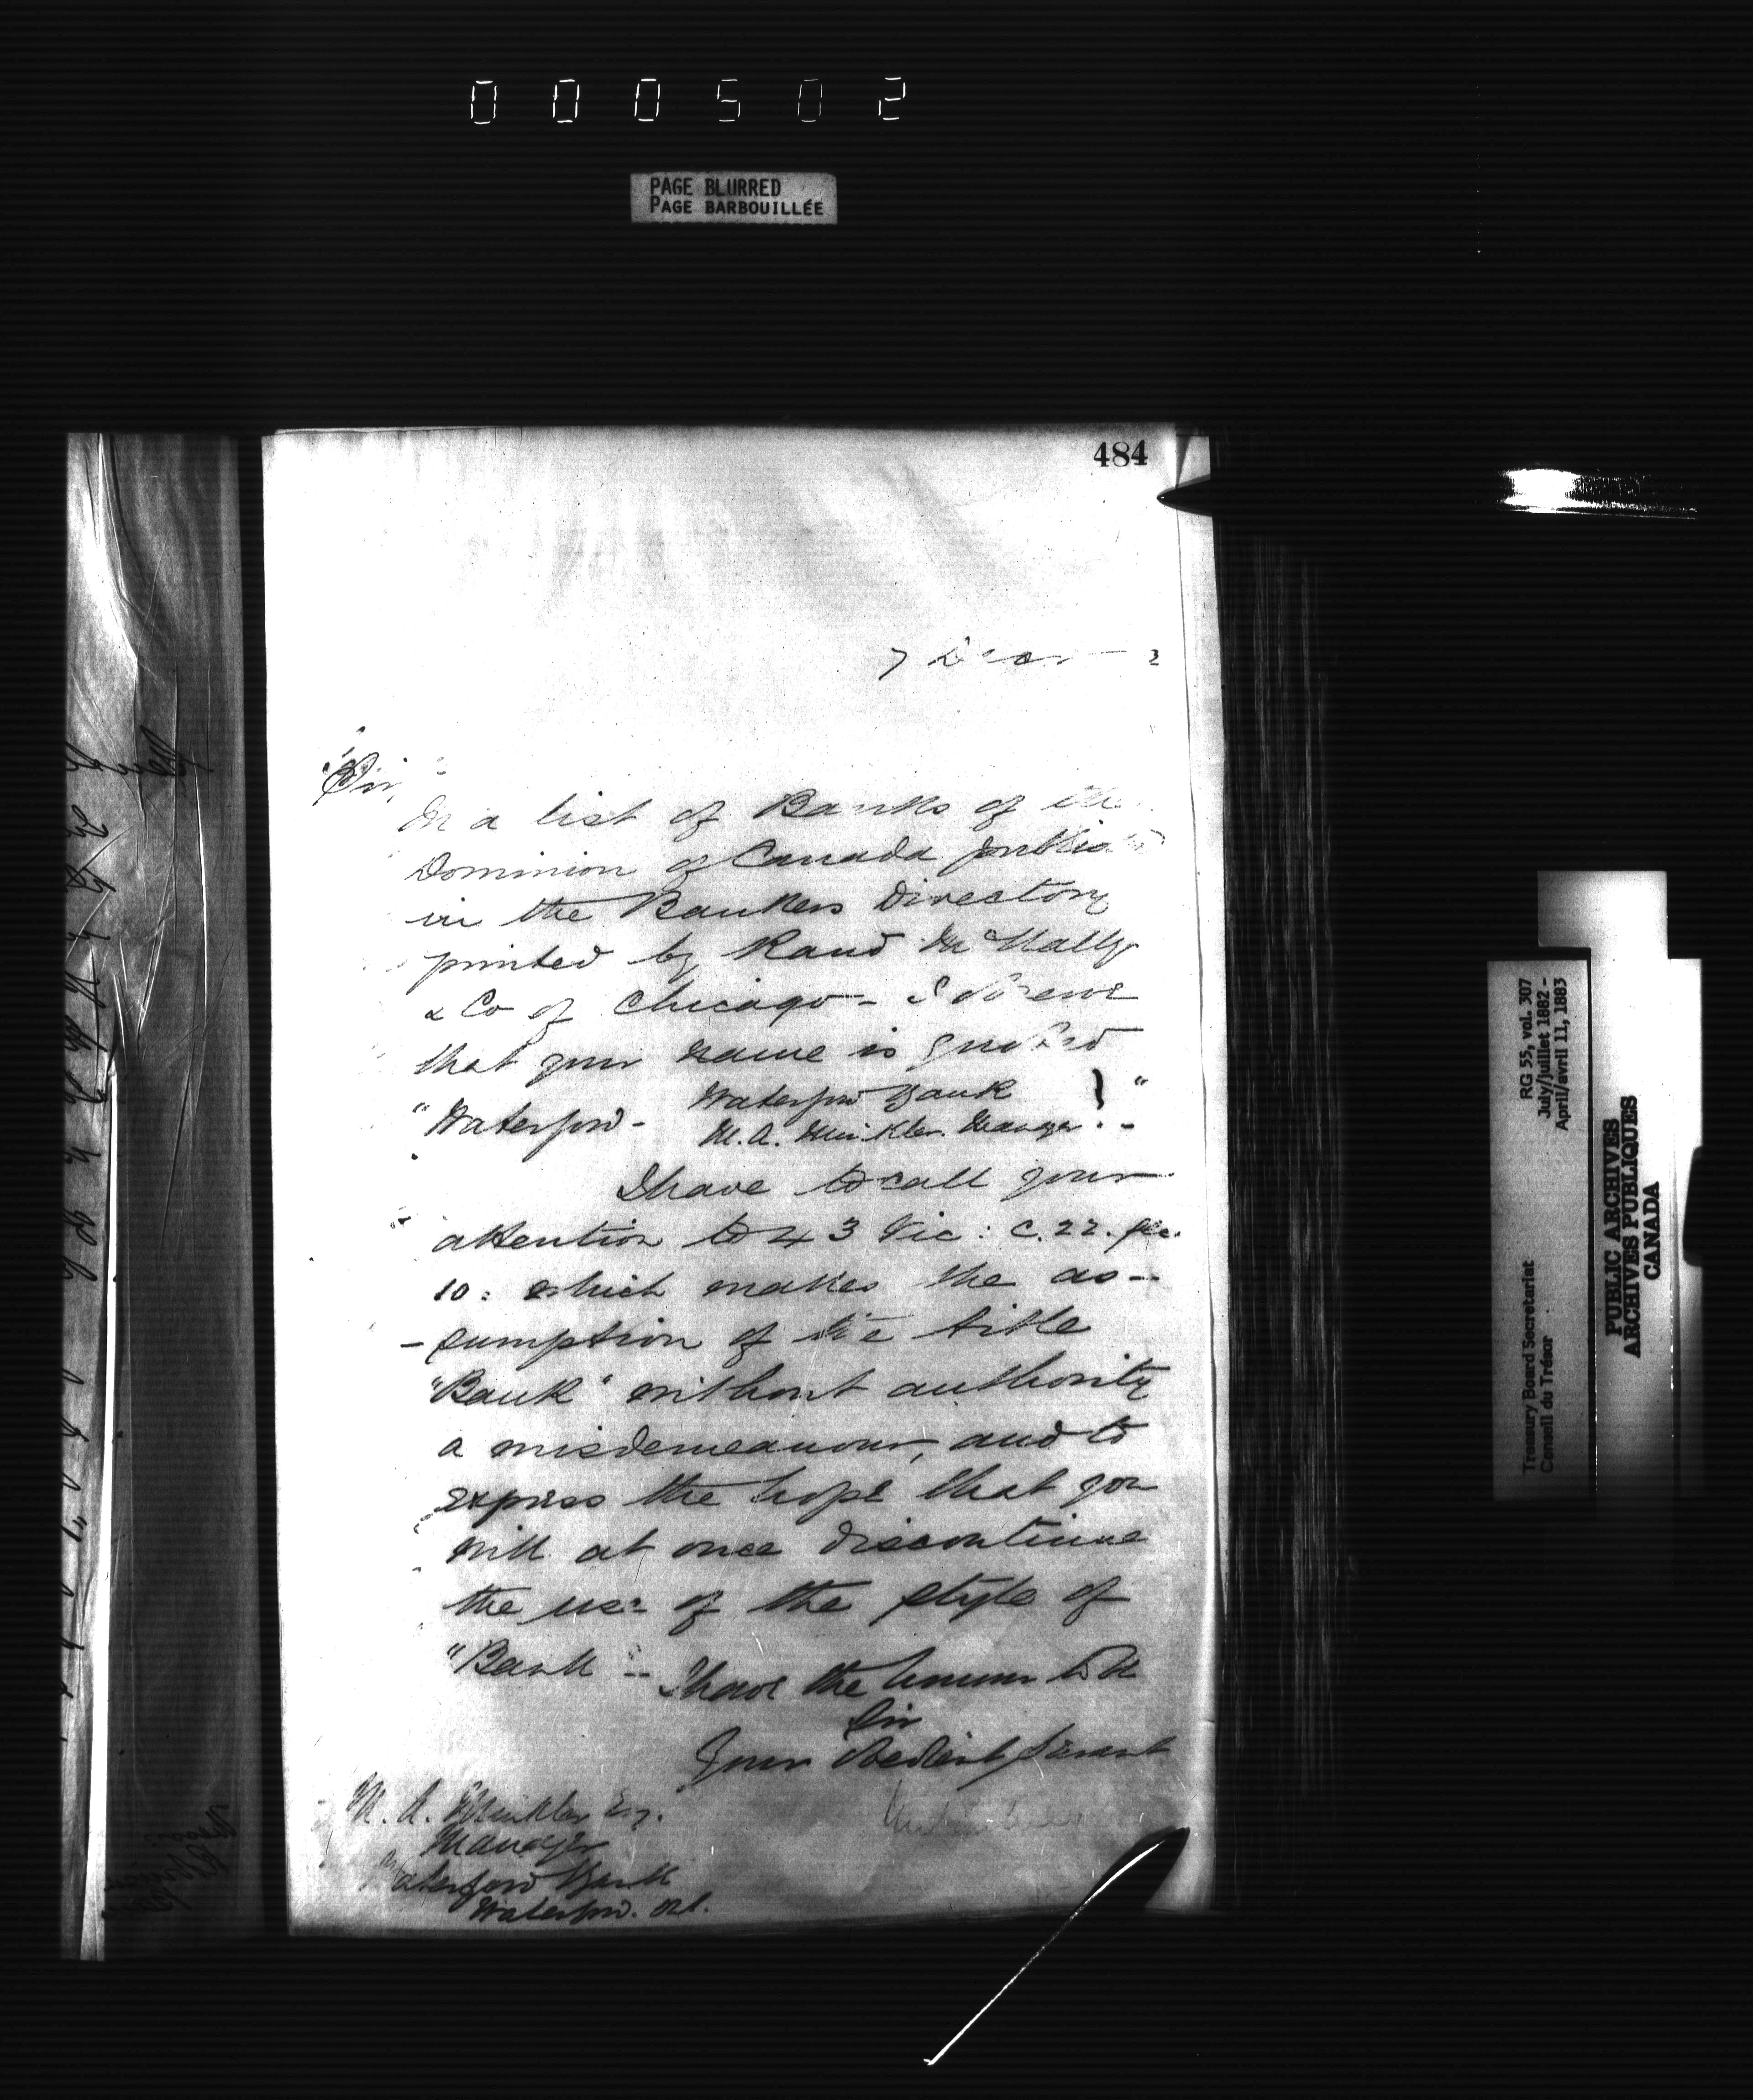 000502
PAGE BLURRED
PAGE BARBOUILLÉE
484
7
Sir,
In a list of Banks of the
Dominion of Canada
in the Bankers Directory
printed by Rand McNally
& Co of Chicago - I observe
that your name is quoted
"Waterford - Waterford Bank } "
M. A. Manager
I have to call your
attention to 43 Vic: C. 22. Sec.
10: which makes the as-
-sumption of the title
"Bank" without authority
a misdemeanour, and to
express the hope that you
will at once discontinue
the use of the style of
"Bank" -- I have the honour to be
Sir
Your Obedient Servant
M. A. Esq.
Manager
Waterford Bank
Waterford. Ont.
RG 55, vol. 307
July/juillet 1882 -
April/avril 11, 1883
Treasury Board Secretariat
Conseil du Trésor
PUBLIC ARCHIVES
ARCHIVES PUBLIQUES
CANADA